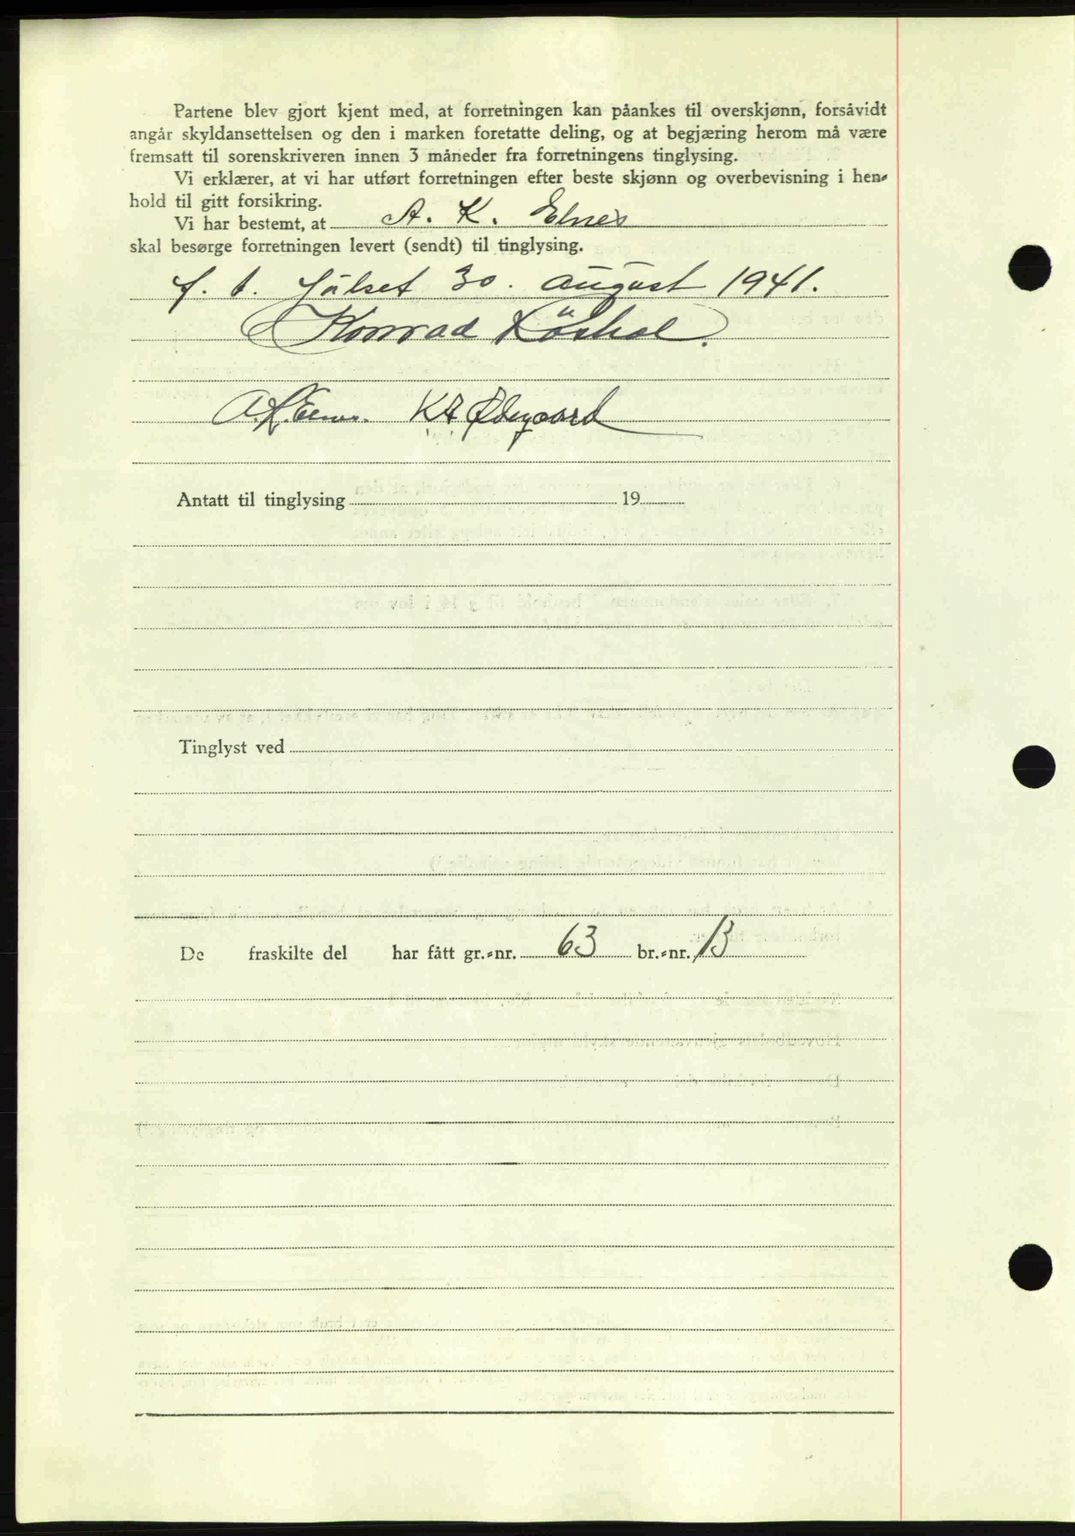 Partene blev gjort kjent med, at forretningen kan påankes til overskjønn, forsåvidt
angår skyldansettelsen og den i marken foretatte deling, og at begjæring herom må være
fremsatt til sorenskriveren innen 3 måneder fra forretningens tinglysing.
Vi erklærer, at vi har utført forretningen efter beste skjønn og overbevisning i hen-
hold til gitt forsikring.
Vi har bestemt, at A. K. Elnes
skal besørge forretningen levert (sendt) til tinglysing.
f. t. Julset 30. august 1941.
Konrad
A. K. Elnes. K A Ødegaard
Antatt til tinglysing 19
Tinglyst ved
De fraskilte del har fått gr.-nr. 63 br.-nr. 13